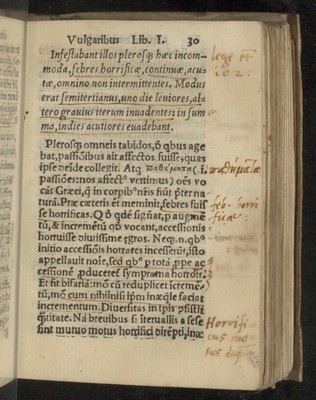 Vulgaribus Lib. I. 30
Infestabant illos plerosq; hæc incom-
moda, febres horrificæ, continuæ, acu-
tæ, omnino non intermittentes. Modus
erat semitertianus, uno die leuiores, al-
tero grauius iterum inuadentes: in sum
ma, indies acutiores euadebant.
Plerosq; omneis tabidos, q̃ bus age
bat, passiōibus ait affectos fuisse, quas
ipse deide collegit. Atq παθήματα (.i.
passiōes: nos affectꝰ vertimus) oēs vo
cāt Græci, q̃ in corpibꝰ nr̃is fiūt p̃ter na
turā. Præ cæteris et meminit, febres fuis
se horrificas.
tū, & incremētū qb̃ vocant, accessionis
horruisse diutissime ægros. Neq. n. qbꝰ
initio accessiōis horrores incesserūt, isto
appellauit
cessionē pduceret symptoma horroris.
Et fit bifariā: mō cū reduplicet icremē
tū, mō cum nihil nisi ipm inæq̃le faciat
incrementum. Diuersitas in
q̃titate. Nā breuibus si iteruallis a sese
sint mutuo motus horrifici dirēpti, inæ
lege et
102.
παθήματα
feb. horri
ficæ
Horrifi
cus mo
tus duplex